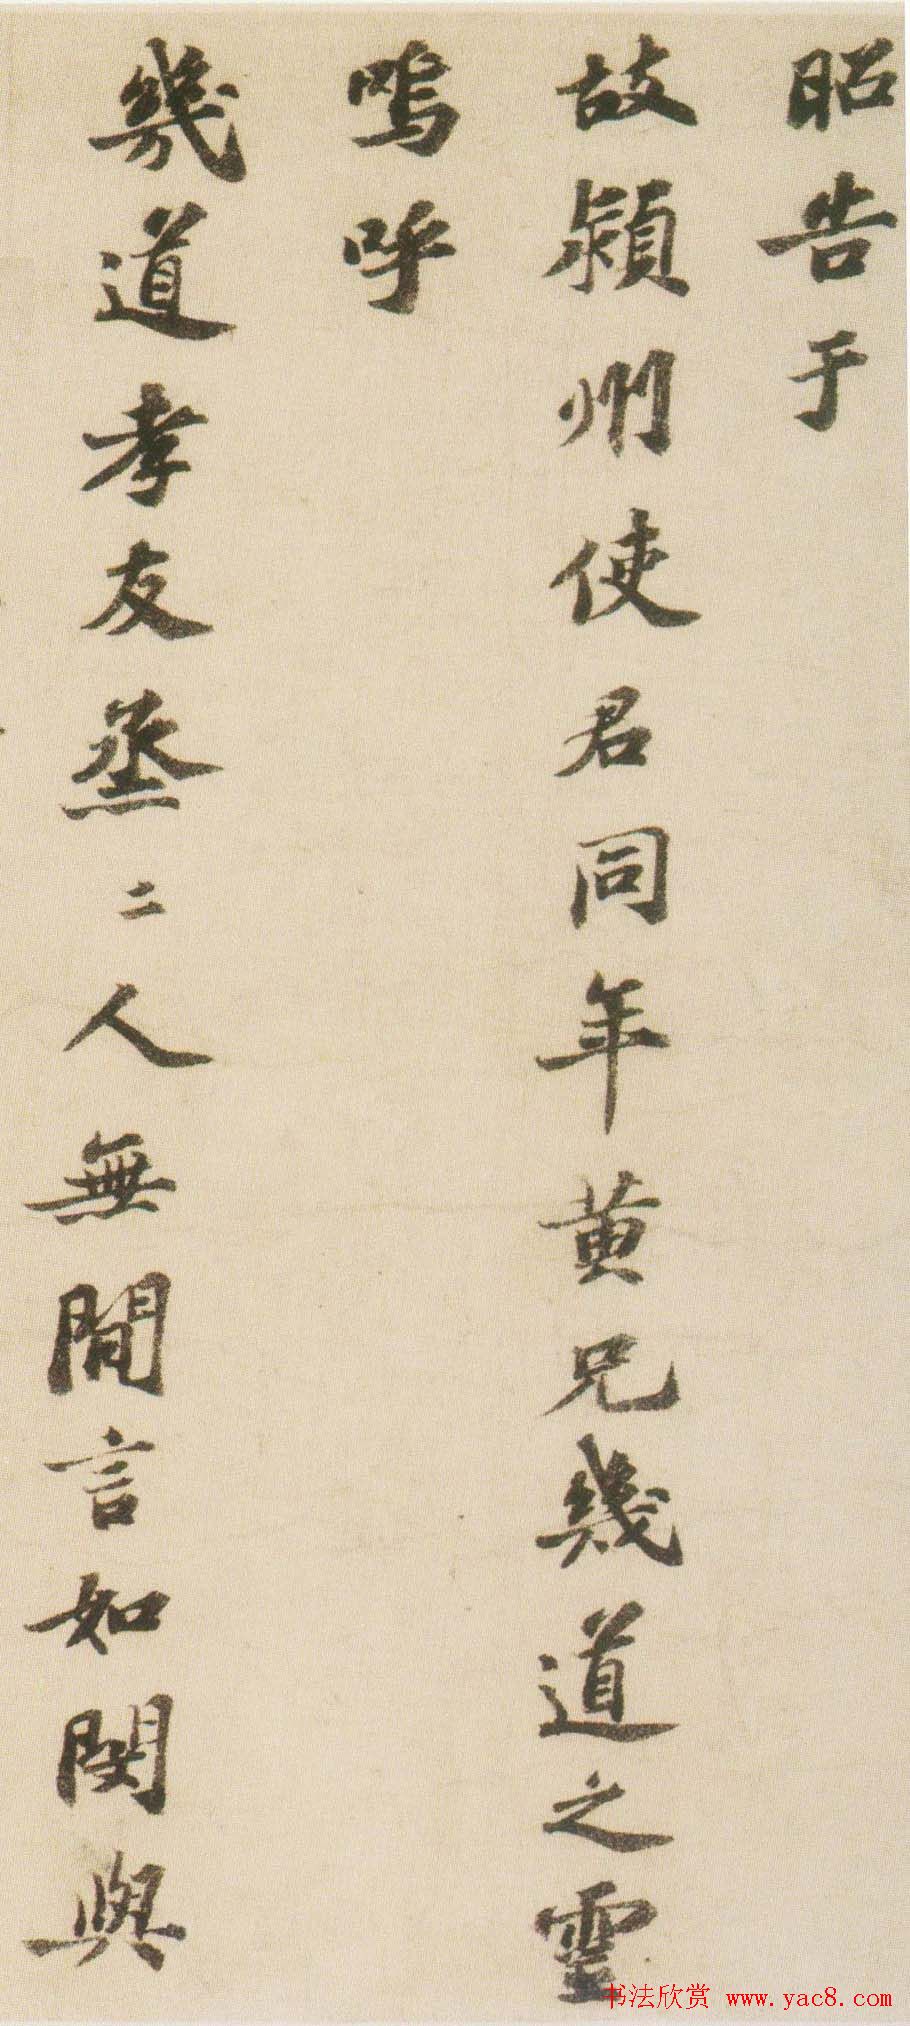 昭告于
故潁州使君同年黄兄幾道之靈
嗚呼
幾道孝友烝二人無閒言如閔與
书法欣赏 www.yac8.com